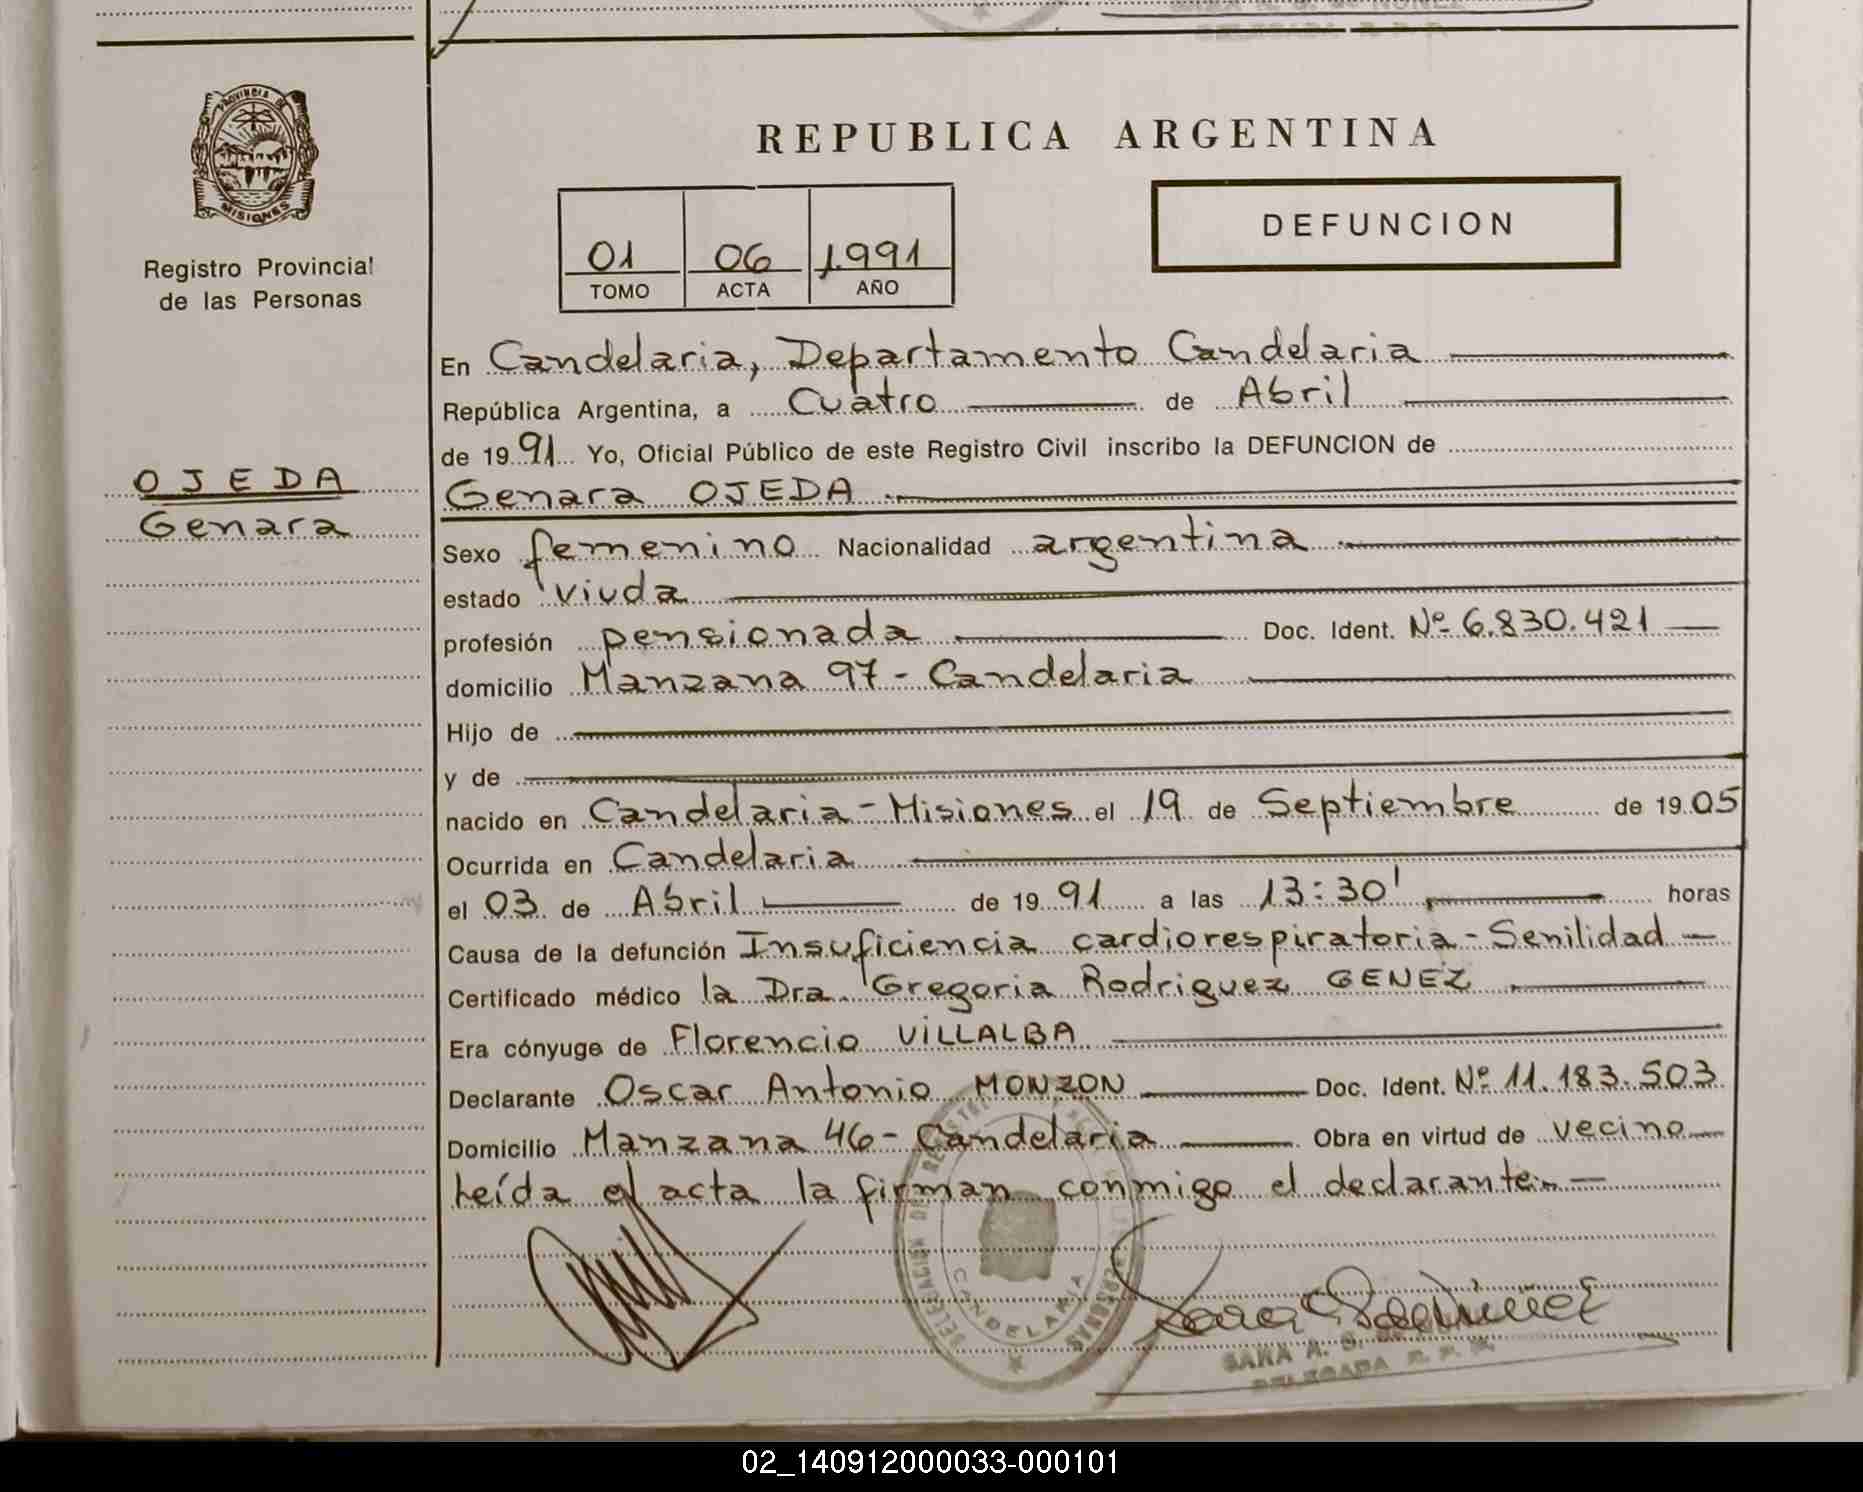 PROVINCIA DE
MISIONES
Registro Provincial
de las Personas
OJEDA
Genara
REPUBLICA ARGENTINA
01 06 1991
TOMO ACTA AÑO
DEFUNCION
En Candelaria, Departamento Candelaria
República Argentina, a Cuatro de Abril
de 1991 Yo, Oficial Público de este Registro Civil inscribo la DEFUNCION de
Genara OJEDA
Sexo femenino Nacionalidad argentina
estado viuda
profesión pensionada Doc. Ident. Nº 6.830.421
domicilio Manzana 97 - Candelaria
Hijo de
y de
nacido en Candelaria - Misiones el 19 de Septiembre de 1905
Ocurrida en Candelaria
el 03 de Abril de 1991 a las 13:30' horas
Causa de la defunción Insuficiencia cardiorespiratoria - Senilidad
Certificado médico la Dra. Gregoria Rodriguez GENEZ
Era cónyuge de Florencio VILLALBA
Declarante Oscar Antonio MONZON Doc. Ident. Nº 11.183.503
Domicilio Manzana 46 - Candelaria Obra en virtud de vecino
Leída el acta la firman conmigo el declarante.-
CANDELARIA
SARA
DELEGADA R. P. P.
02_140912000033-000101